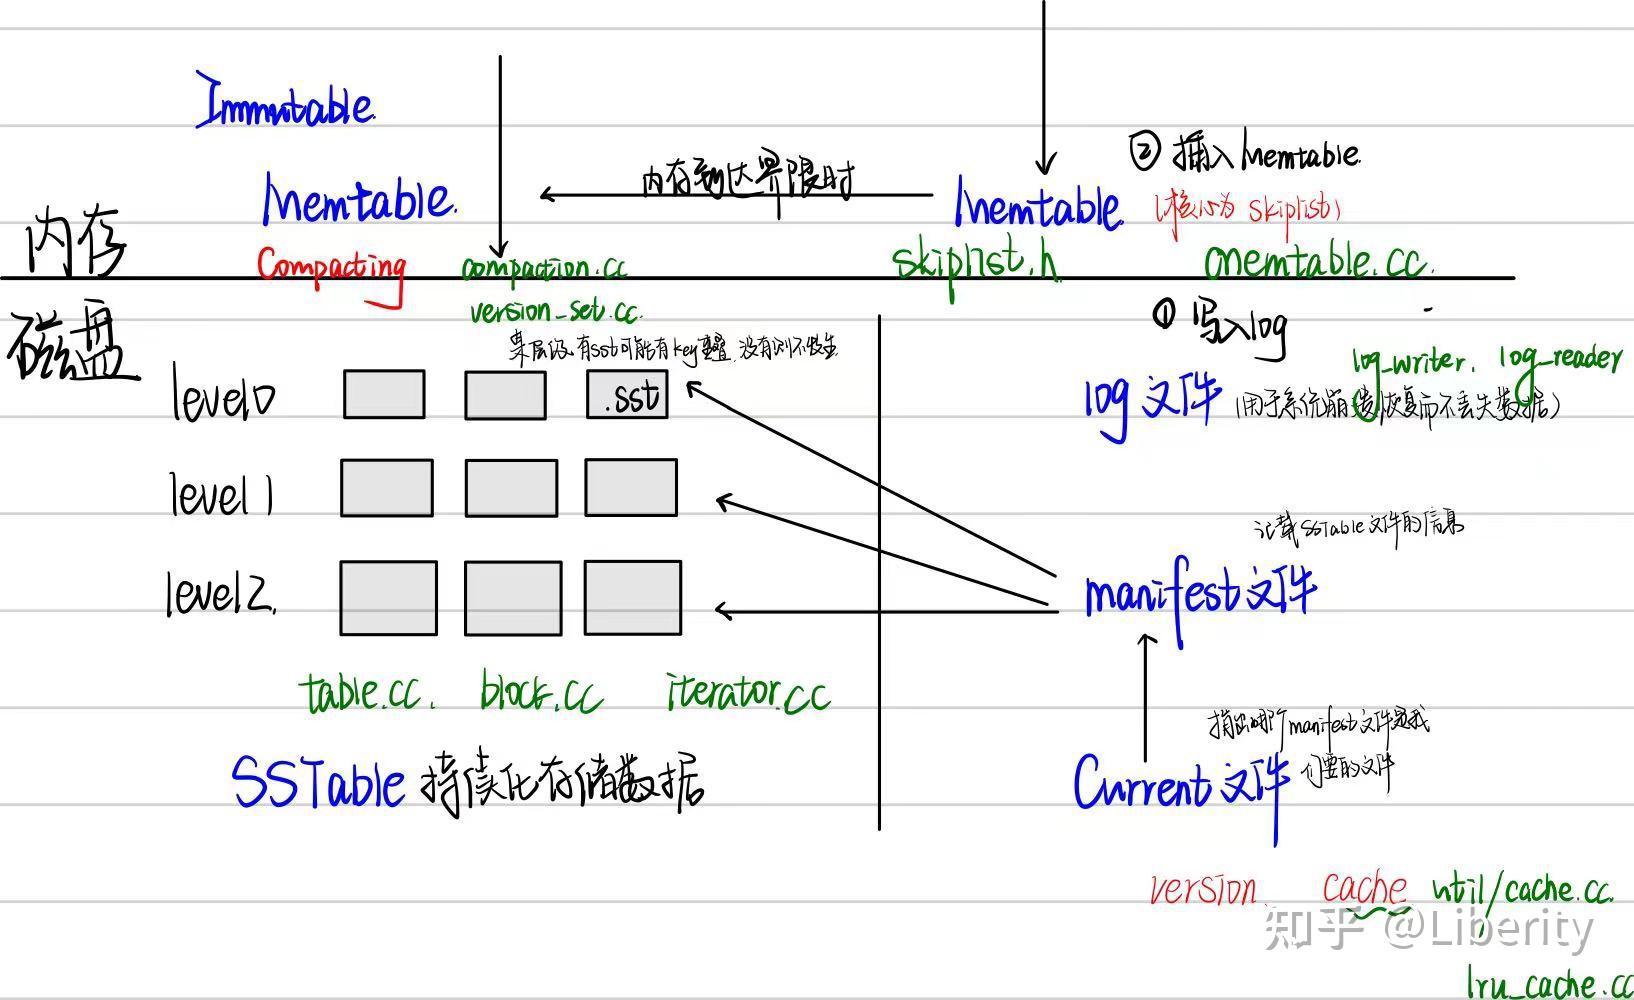 Immutable
Memtable.
内存到达界限时
Memtable.
② 插入Memtable.
(核心为 skiplist)
内存
Compacting
compaction.cc
skiplist.h
memtable.cc.
磁盘
version_set.cc.
① 写入log
某层级有sst可能有key重叠,没有则不发生
log_writer. log_reader
level0
.sst
log文件
(用于系统崩溃恢复而不丢失数据)
level1
记载SSTable文件的信息
level2.
manifest文件
table.cc. block.cc iterator.cc
指出哪个manifest文件是我
们要的文件
SSTable 持续化存储数据
Current文件
version. cache util/cache.cc.
知乎 @Liberity
lru_cache.cc